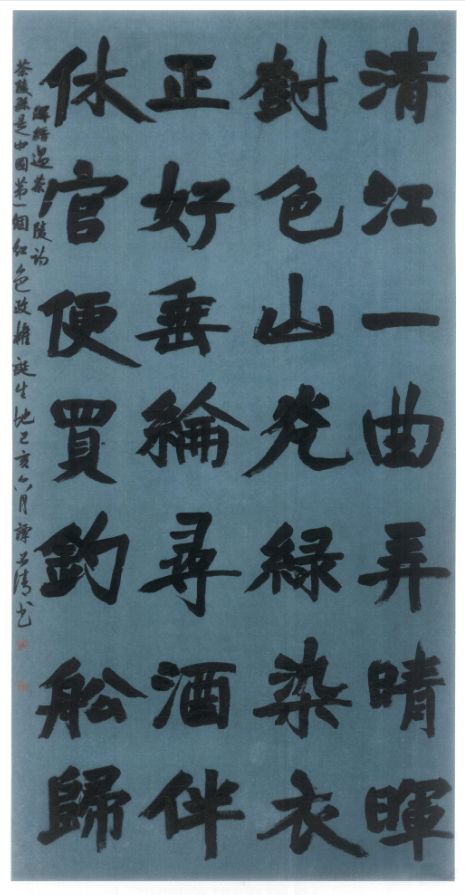 清江一曲弄晴暉
對色山光綠染衣
正好垂綸尋酒伴
休官便買釣船歸
解縉過茶陵詩
茶陵縣是中國第一個紅色政權誕生地己亥六月譚
清書